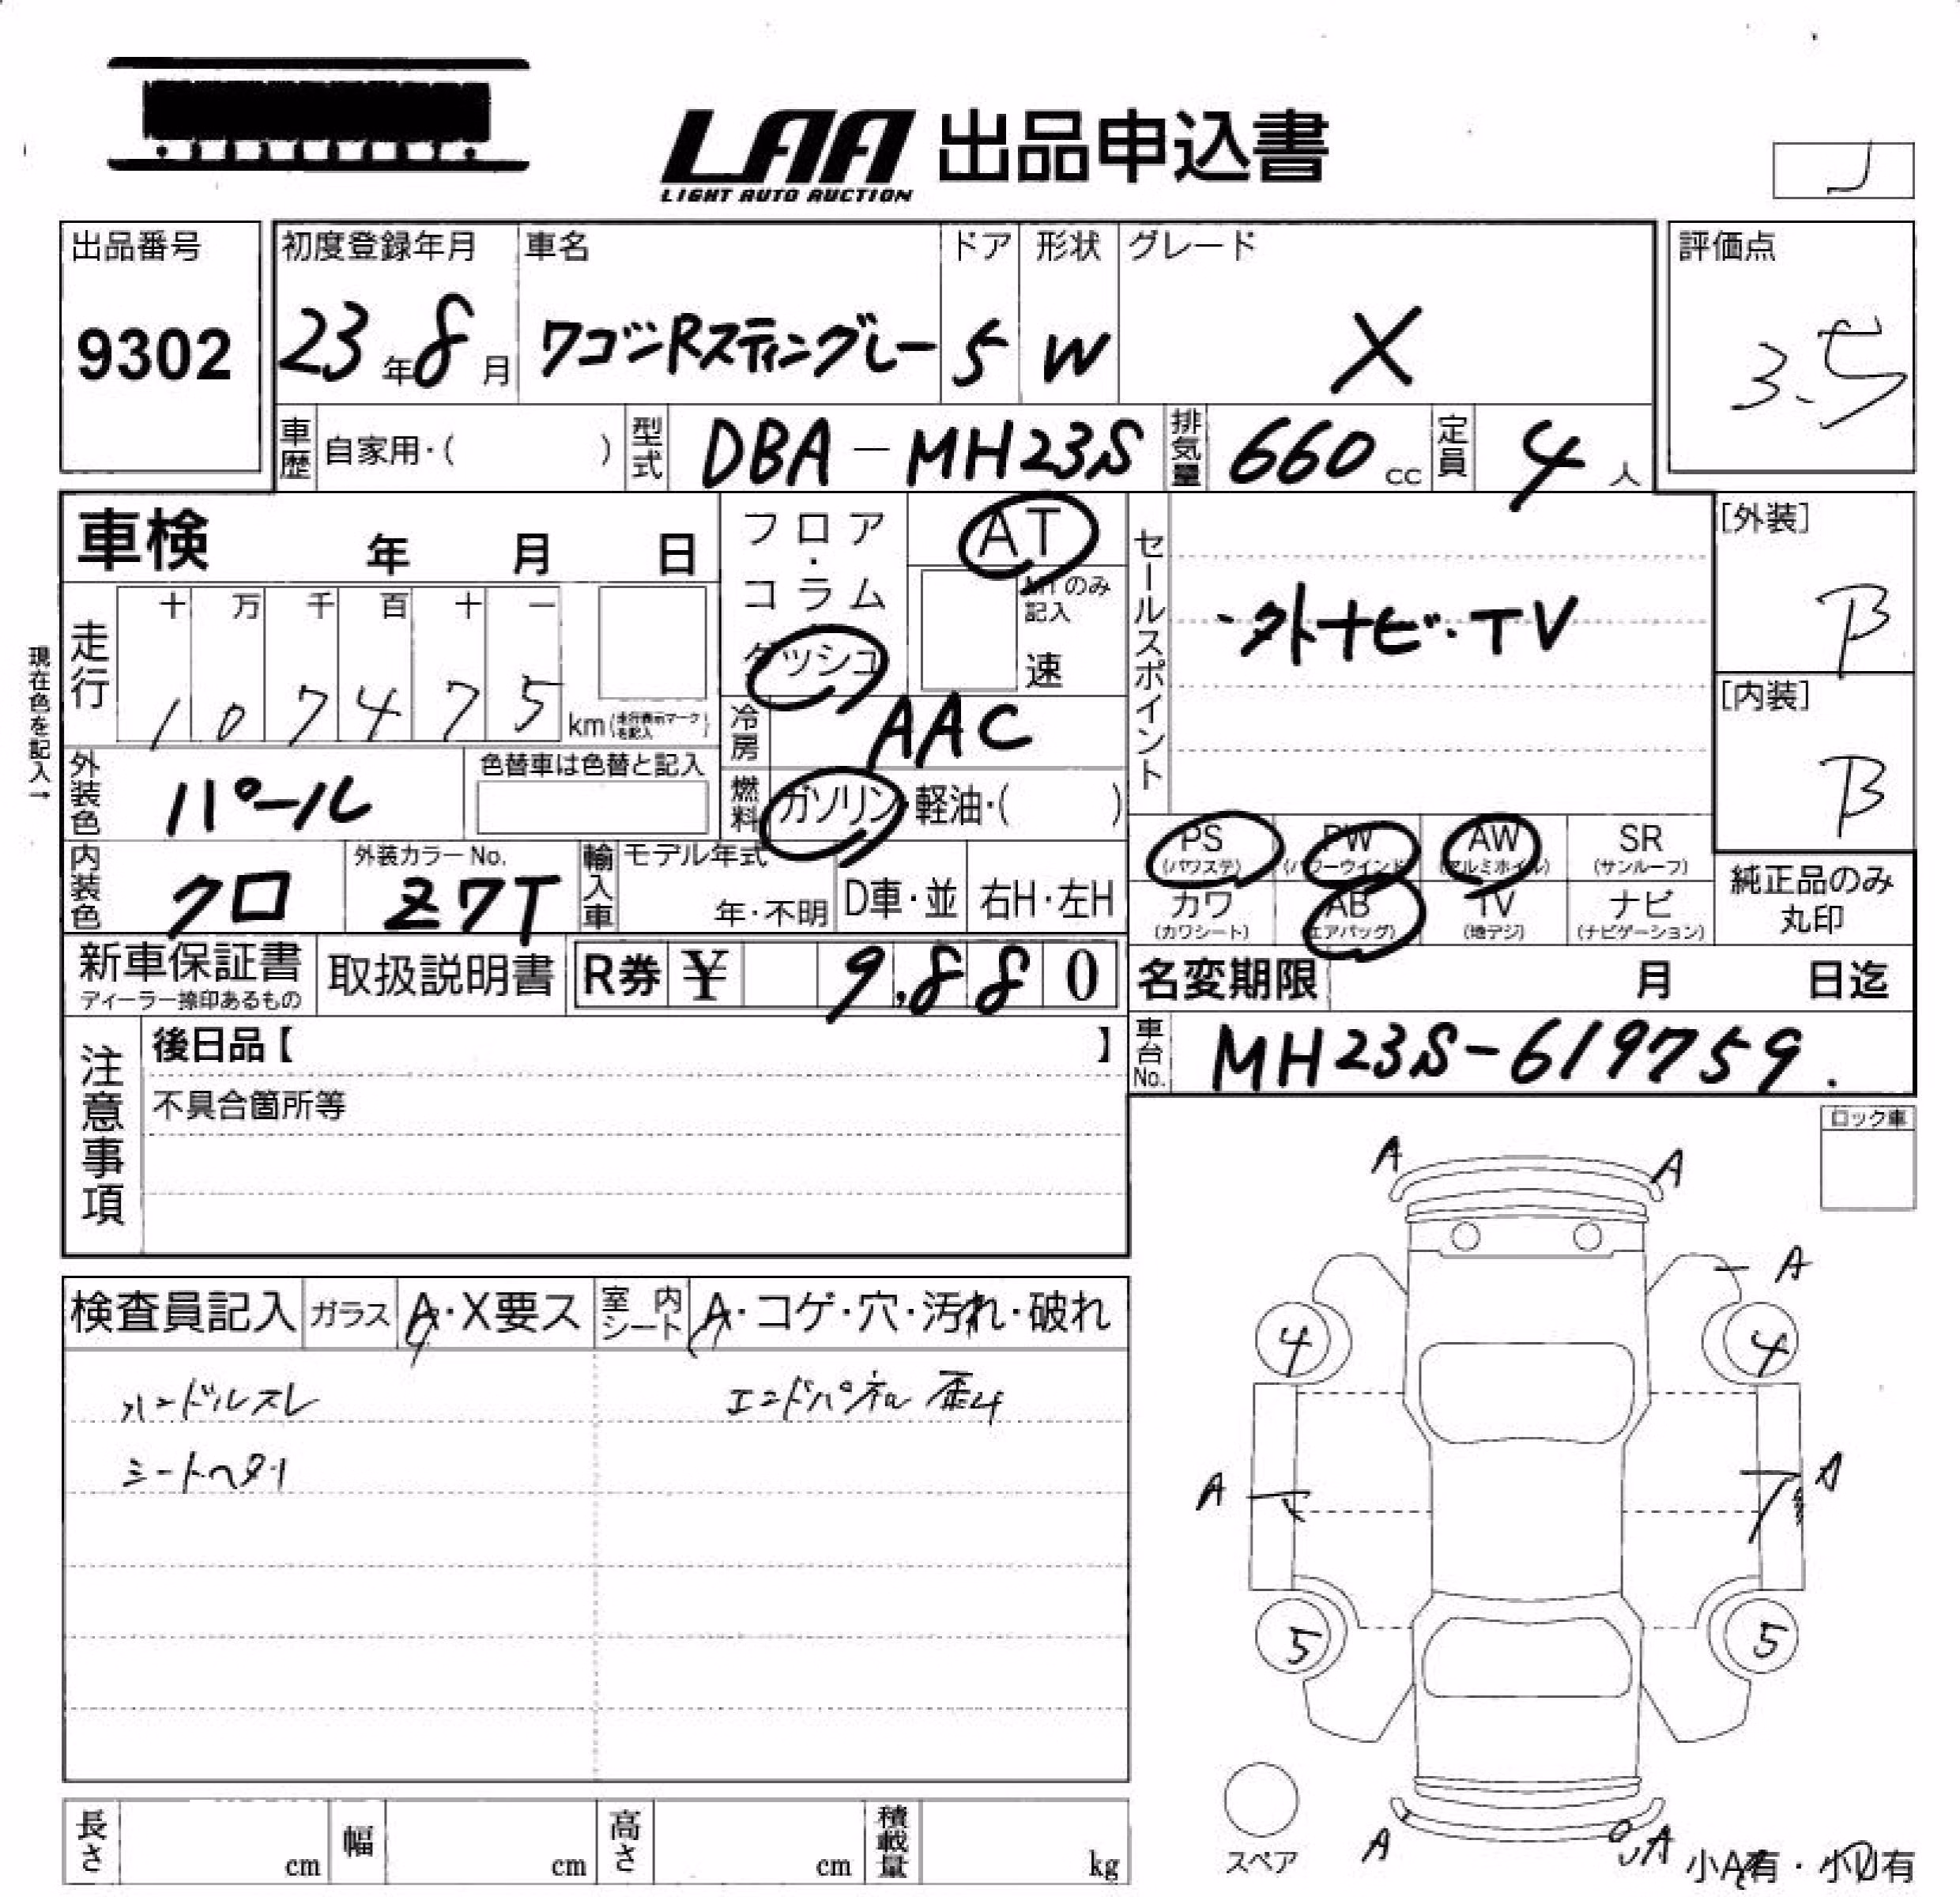 LAA 出品申込書
LIGHT AUTO AUCTION
J
出品番号 初度登録年月 車名 ドア 形状 グレード 評価点
9302 23年8月 ワゴンRスティングレー 5 W X 3.5
車歴 自家用・( ) 型式 DBA-MH23S 排気量 660cc 定員 4人
車検 年 月 日 フロア・コラム ダッシュ AT MTのみ記入 速
セールスポイント ・外ナビ・TV
[外装] B
[内装] B
現在色を記入→
走行 十 万 千 百 十 一
1 0 7 4 7 5 km(走行表示マークを記入)
冷房 AAC
外装色 パール 色替車は色替と記入
燃料 ガソリン・軽油・( )
PS (パワステ) PW (パワーウインド) AW (アルミホイル) SR (サンルーフ)
カワ (カワシート) AB (エアバッグ) TV (地デジ) ナビ (ナビゲーション)
純正品のみ丸印
内装色 クロ 外装カラーNo. Z7T 輸入車 モデル年式 年・不明 D車・並 右H・左H
新車保証書 ディーラー捺印あるもの 取扱説明書 R券 ¥ 9,880
名変期限 月 日迄
車台No. MH23S-619759.
注意事項
後日品【 】
不具合箇所等
ロック車
検査員記入 ガラス A・X要ス 室内シート A・コゲ・穴・汚れ・破れ
ハンドルスレ エンドパネル 歪み
シートヘタリ
A A
A
4 4
A A
5 5
スペア
A A
小A有・小U有
長さ cm 幅 cm 高さ cm 積載量 kg